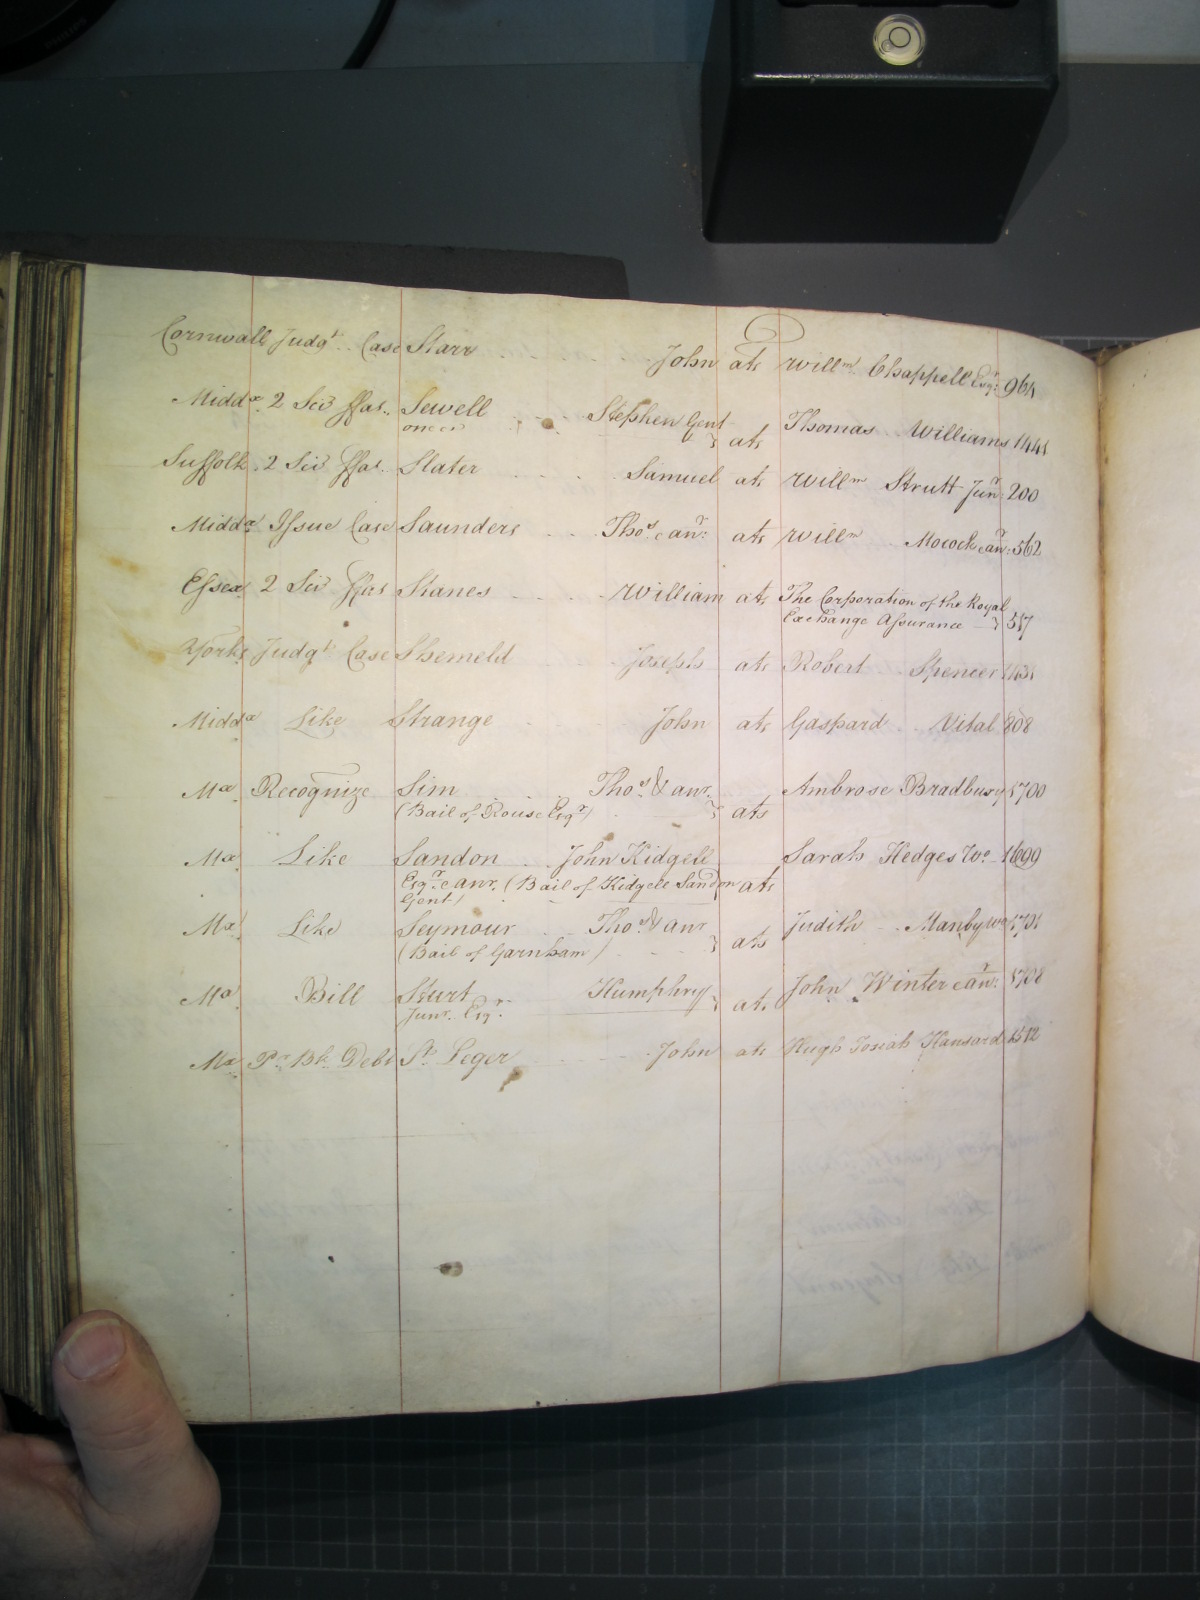 Cornwall Judgt. Case Starr John ats Willm. Chappell Esqr. 964
Middx. 2 Sci ffas.. Sewell Stephen Gent Thomas Williams
oneer } ats
Suffolk. 2 Sci ffas. Slater Samuel ats Willm Strutt Junr. 200
Middx Issue Case Saunders Thos. & anr. ats Willm Mocock & anr. 562
Essex 2 Sci ffas Stanes William ats The Corporation of the Royal
Exchange Assurance } 517
Yorks Judgt Case Shemeld Joseph ats Robert Spencer
Middx Like Strange John ats Gaspard Vital 808
Mx Recognize Sim Thos. & anr. Ambrose Bradbury 1700
(Bail of Rouse Esqr.) } ats
Mx Like Sandon John Kidgell Sarah Hedges Wo. 1699
Esqr. & anr. (Bail of Kidgell Sandon ats
Gent)
Mx Like Seymour Thos. & anr Judith Manby Wo
(Bail of Garnham) } ats
Mx Bill Sturt Humphrey John Winter & anr. 1708
Junr. Esqr. } ats
Mx Pr. Bk. Debt St. Leger John ats Hugh Josiah Hansard 1512